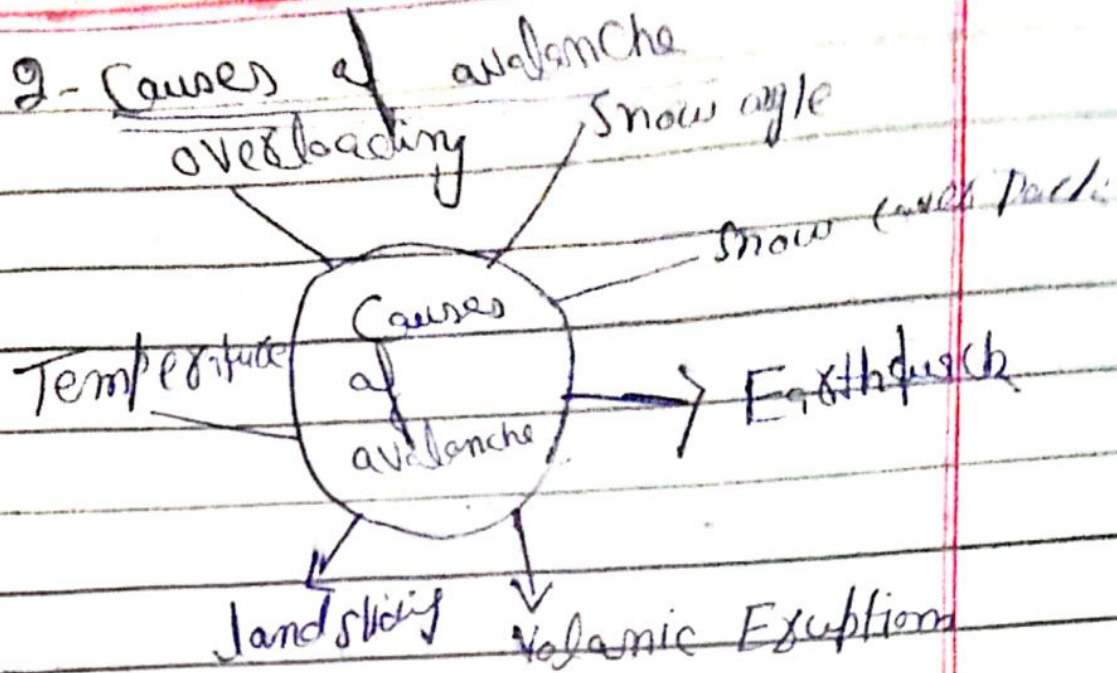 2- Causes of avalanche
overloading
Snow agle
Snow cover
Causes
of
avalanche
Temperituce
Earthquack
landsliding
Volamic Eruption